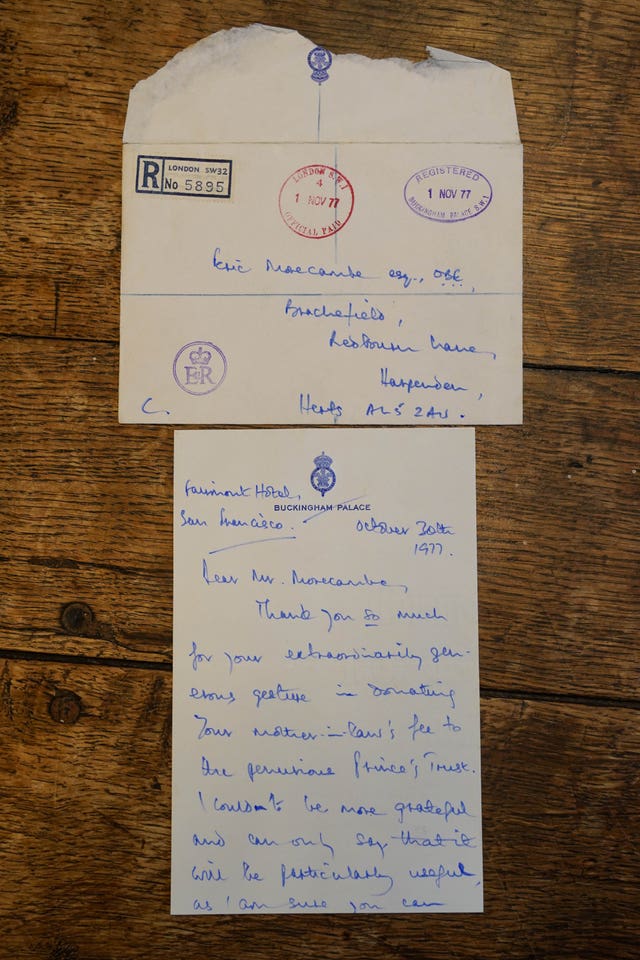 R
LONDON SW32
No 5895
LONDON S.W.1
4
1 NOV 77
OFFICIAL PAID
REGISTERED
1 NOV 77
BUCKINGHAM PALACE S.W.1
Eric Morecambe esq., OBE,
Brachefield,
Redbourn Lane,
Harpenden,
Herts AL5
EIIR
C.
Fairmont Hotel,
San Francisco.
BUCKINGHAM PALACE
October 30th
1977.
Dear Mr. Morecambe,
Thank you so much
for your extraordinarily gen-
erous gesture in donating
your mother-in-law's fee to
the penurious Prince's Trust.
I couldn't be more grateful
and can only say that it
will be particularly useful,
as I am sure you can